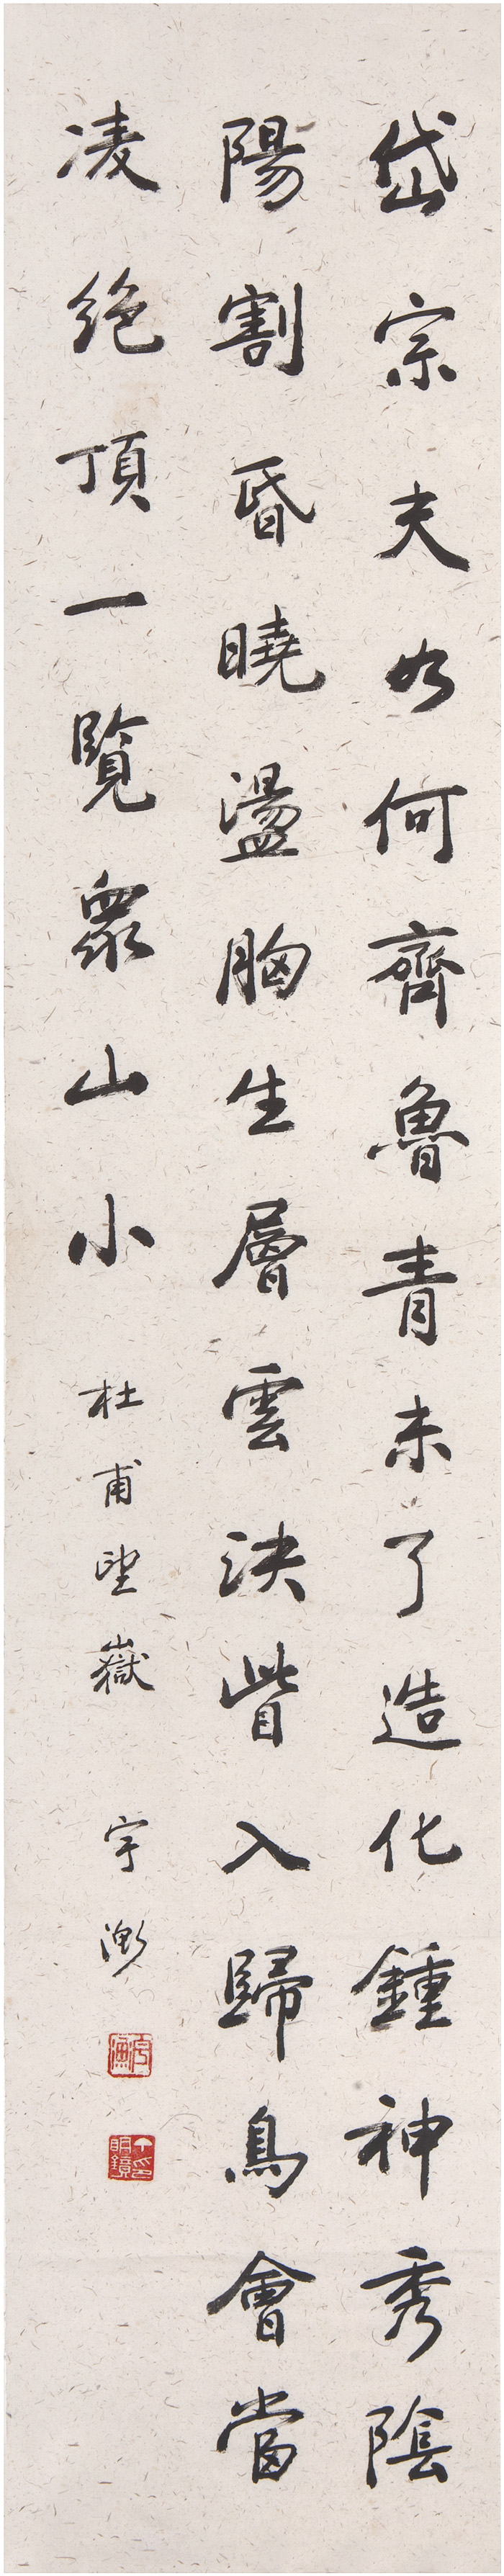 岱宗夫如何齊魯青未了造化鍾神秀陰
陽割昏曉盪胸生層雲決眥入歸鳥會當
凌絕頂一覽眾山小
杜甫望嶽
宇
明鏡